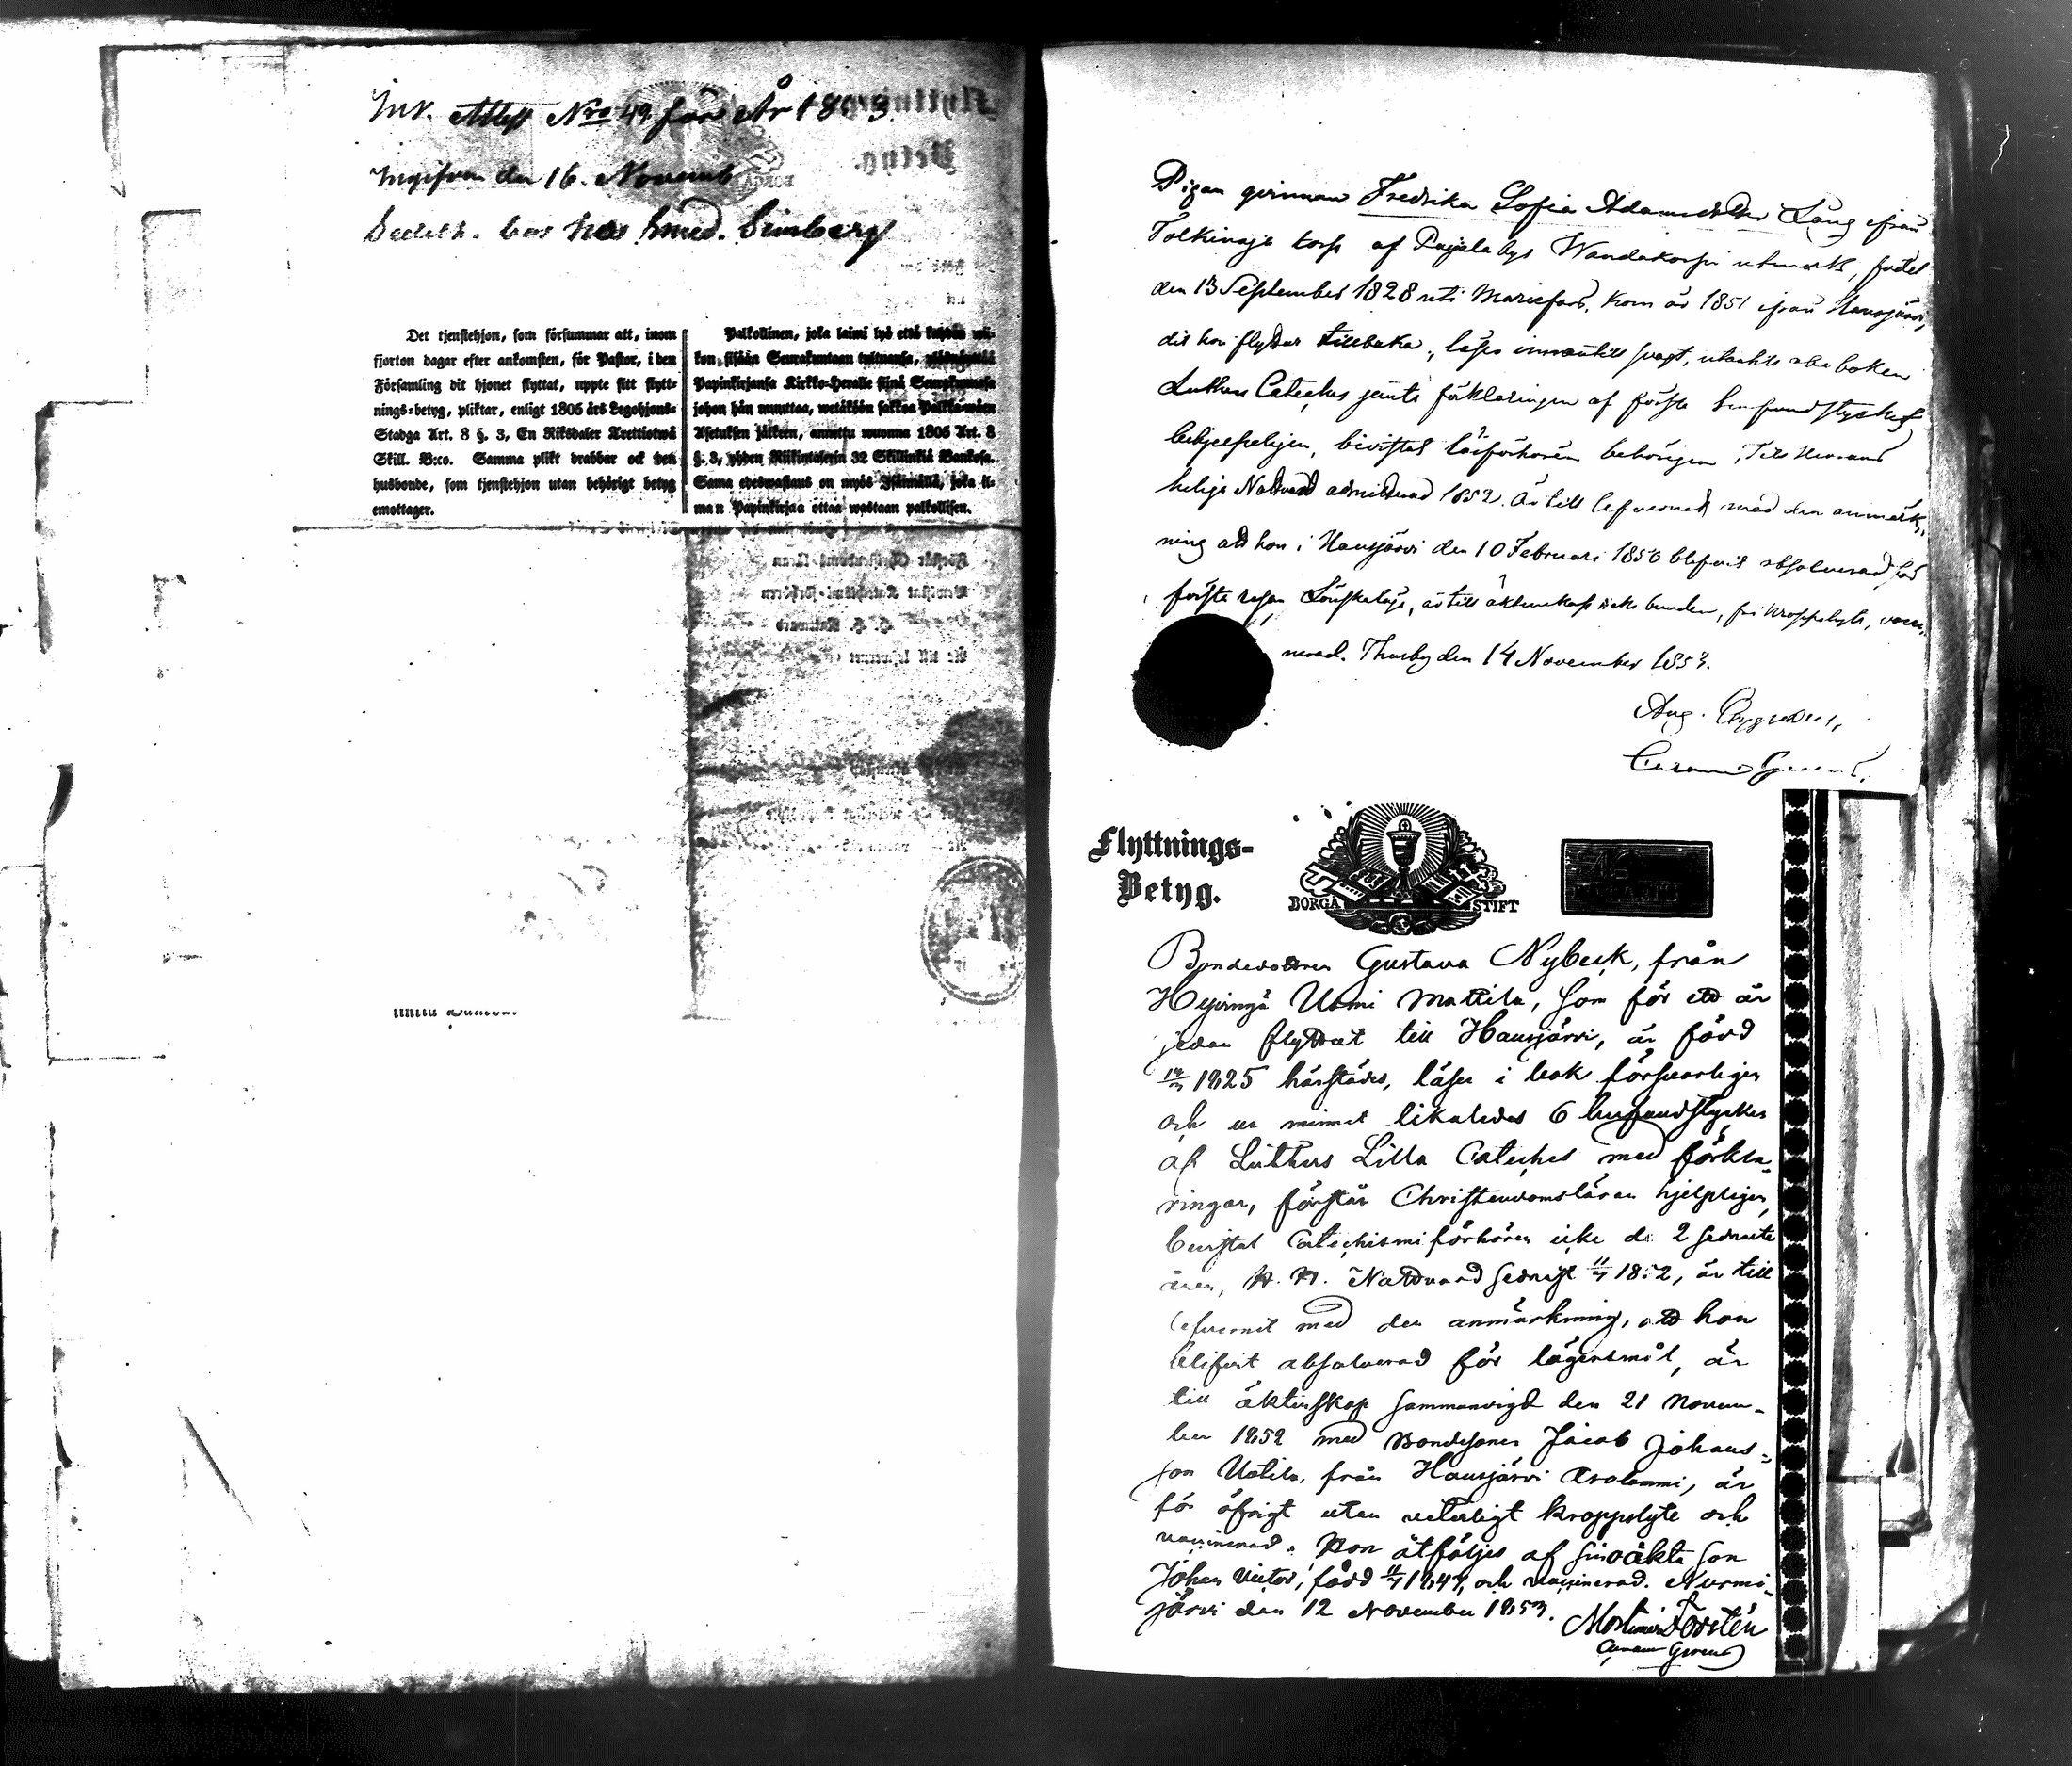 Ink. Attest Nro 49 för År 1853.
Ingifven den 16. Novemb
hos Smed. Limberg
Det tjenstehjon, som försummar att, inom
fjorton dagar efter ankomsten, för Pastor, i den
Församling dit hjonet flyttat, uppte sitt flytt-
nings-betyg, pliktar, enligt 1805 års Legohjons-
Stadga Art. 8 §. 3, En Riksdaler Trettiotwå
Skill. B:co. Samma plikt drabbar ock den
husbonde, som tjenstehjon utan behörigt betyg
emottager.
Palkollinen, joka laimi lyö että kahden wii-
kon sisään Seurakuntaan tultuansa,
Papinkirjansa Kirkko-Herralle siinä Seurakunnassa
johon hän muuttaa, wetäköön sakkoa Palkka-wäen
Asetuksen jälkeen, annettu wuonna 1805 Art. 8
§. 3, yhden Riikintalerin 32 Skillinkiä Bankosa.
Sama edeswastaus on myös Isännällä, joka il-
man Papinkirjaa ottaa wastaan palkollisen.
Pigan qvinnan Fredrika Sofia Adamsdotter Lång ifrån
Tolkinoja torp af Pajala bys Wandakorpi utmark, född
den 13 September 1828 uti Mariefors, kom år 1851 ifrån Hausjärvi,
dit hon flyttar tillbaka, läser innantill svagt, utantill abc boken
Luthers Cateches jemte förklaringen af första hufvudstycket
behjelpeligen, bivistat läsförhören behörigen, Till Herrans
heliga Nattvard admitterad 1852. Är till lefvernet med den anmärk-
ning att hon i Hausjärvi den 10 Februari 1850 blifvit absolverad för
första resan Lönskaläge, är till äktenskap icke bunden, fri kroppslyte, vacci-
nerad. Thusby den 14 November 1853.
Aug.
Curam Gerens.
Flyttnings-
Betyg.
BORGÅ STIFT
Bondedottren Gustava Nybeck, från
Hyvingä Uomi Mattila, som för ett år
sedan flyttat till Hausjärvi, är född
1825 härstädes, läser i bok försvarligen
och ur minnet likaledes 6 hufvudstycken
af Luthers Lilla Cateches med förkla-
ringar, förstår Christendomsläran hjelpligen,
bevistat Catechismiförhören icke de 2 sednaste
åren, H. H. Nattvard sednast 1852, är till
lefvernet med den anmärkning, att hon
blifvit absolverad för lägersmål, är
till äktenskap sammanvigd den 21 Novem-
ber 1852 med Bondesonen Jacob Johans-
son Uotila, från Hausjärvi Arolammi, är
för öfrigt utan veterligt kroppslyte och
vaccinerad. Hon åtföljes af sin oäkta son
Johan Victor, född 1849, och vaccinerad. Nurmi-
järvi den 12 November 1853. Mortimer Forstén
Curam Gerens